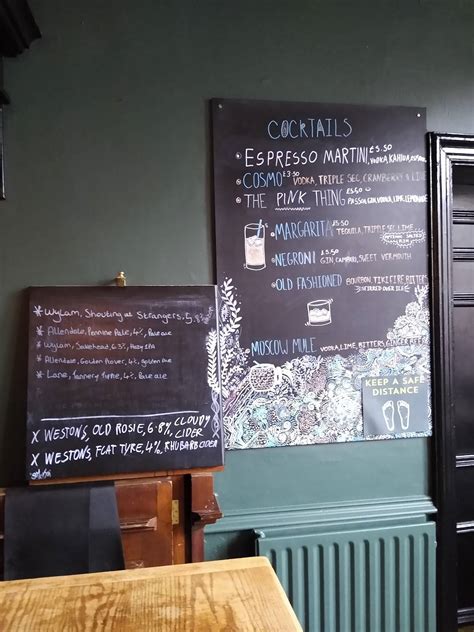 COCKTAILS
ESPRESSO MARTINI, £5.50 VODKA, KAHLUA,
COSMO £3.50 VODKA, TRIPLE SEC, CRANBERRY & LIME
THE PINK THING £5.60 PASSOA, GIN, VODKA, LIME, LEMONADE
MARGARITA £5.50 TEQUILA, TRIPLE SEC, LIME
SALTED
RIM
NEGRONI GIN, CAMPARI, SWEET VERMOUTH
OLD FASHIONED BOURBON, TIKI FIRE BITTERS
STIRRED OVER ICE
MOSCOW MULE VODKA, LIME, BITTERS, GINGER BEER
KEEP A SAFE
DISTANCE
* Wylam, Shouting at Strangers, 5.
* Allendale, Pennine Pale, 4%, Pale ale
* Wylam, Jakehead, 6.3%, IPA
* Allendale, Golden Plover, 4%, golden ale
* Lane, Tannery 4% Pale ale
X WESTONS, OLD ROSIE, 6.8%, CLOUDY CIDER
X WESTONS, FLAT TYRE, 4%, RHUBARB CIDER